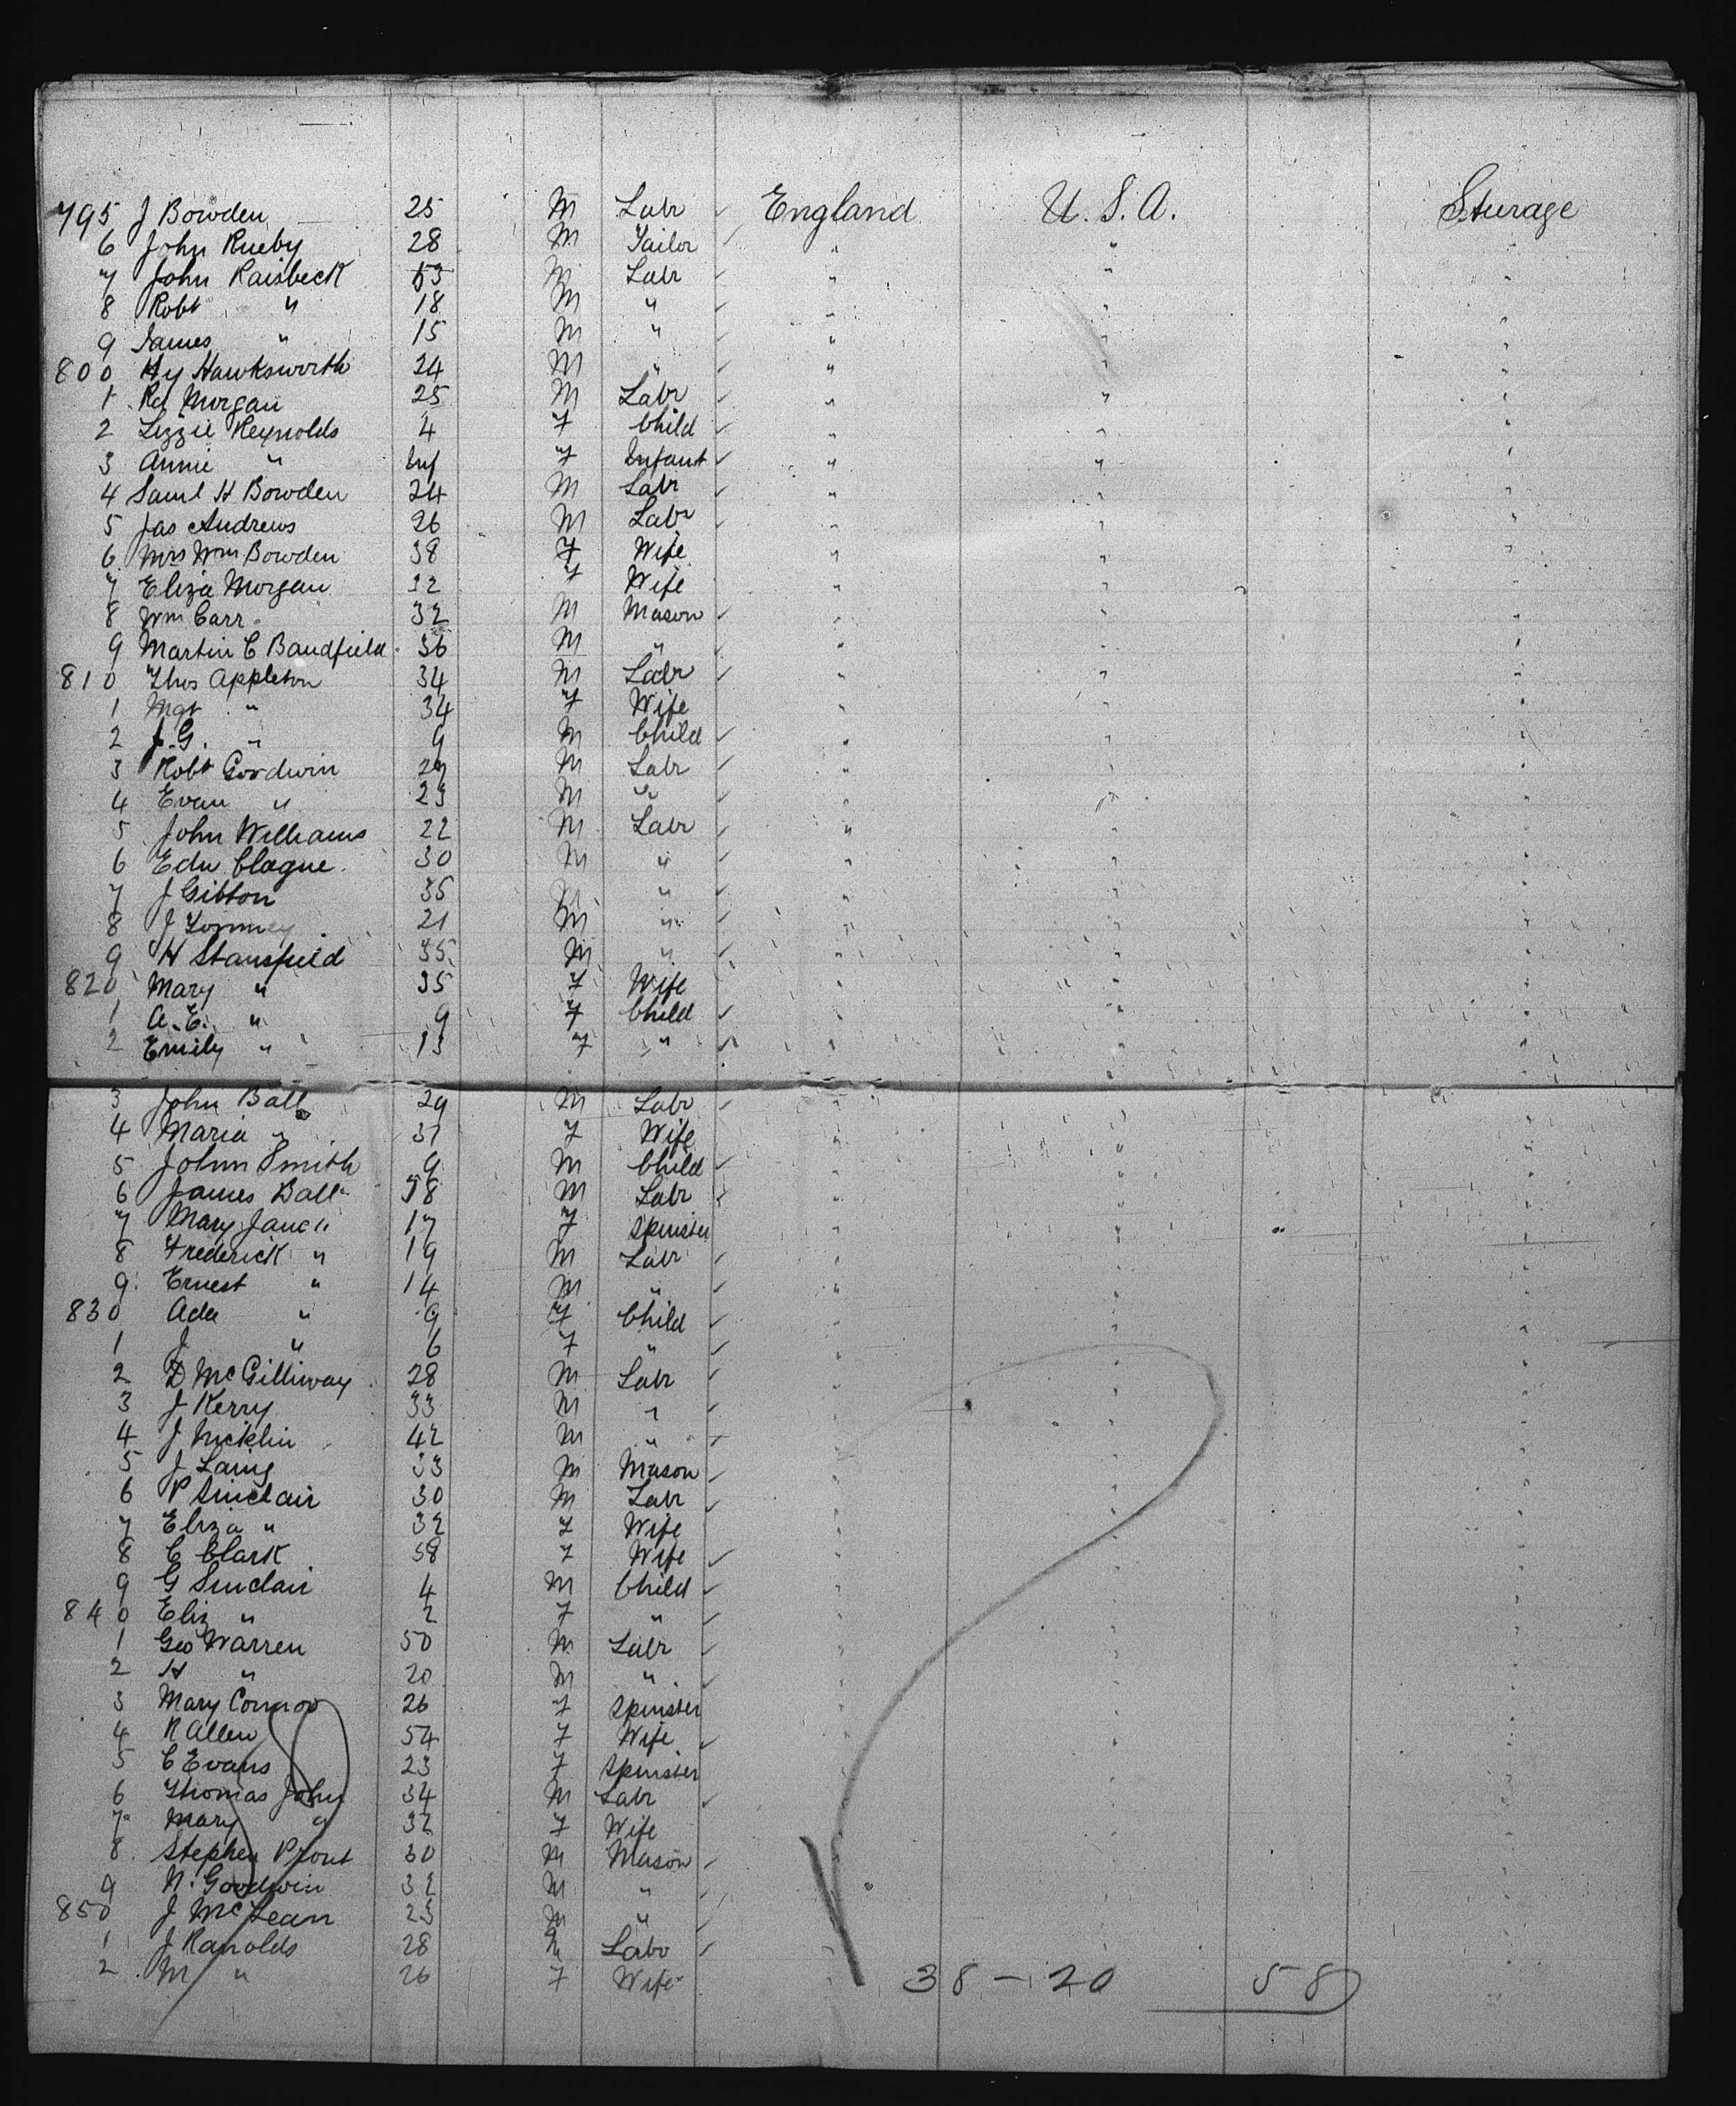 795 J Bowden 25 M Labr England U.S.A. Steerage
6 John Rueby 28 M Tailor " " "
7 John Raisbeck 53 M Labr " " "
8 Robt " 18 M " " " "
9 James " 15 M " " " "
800 Hy Hawksworth 24 M " " " "
1 Rd Morgan 25 M Labr " " "
2 Lizzie Reynolds 4 F Child " " "
3 Annie " Inf F Infant " " "
4 Saml H Bowden 24 M Labr " " "
5 Jas Andrews 26 M Labr " " "
6 Mrs Wm Bowden 38 F Wife " " "
7 Eliza Morgan 22 F Wife " " "
8 Wm Carr 32 M Mason " " "
9 Martin C Bandfield 36 M " " " "
810 Thos Appleton 34 M Labr " " "
1 Mgt " 34 F Wife " " "
2 J.G. " 9 M Child " " "
3 Robt Goodwin 29 M Labr " " "
4 Evan " 23 M " " " "
5 John Williams 22 M Labr " " "
6 Edw Clague 30 M " " " "
7 J Gibson 35 M " " " "
8 J 21 M " " " "
9 H Stansfield 35 M " " " "
820 Mary " 35 F Wife " " "
1 A.E. " 9 F Child " " "
2 Emily " 13 F " " " "
3 John Ball 29 M Labr " " "
4 Maria " 37 F Wife " " "
5 John Smith 9 M Child " " "
6 James Ball 58 M Labr " " "
7 Mary Jane " 17 F Spinster " " "
8 Frederick " 19 M Labr " " "
9 Ernest " 14 M " " " "
830 Ada " 9 F Child " " "
1 J " 6 F " " " "
2 D McGilliway 28 M Labr " " "
3 J Kerry 33 M " " " "
4 J Nicklin 42 M " " " "
5 J Laing 33 M Mason " " "
6 P Sinclair 30 M Labr " " "
7 Eliza " 32 F Wife " " "
8 C Clark 58 F Wife " " "
9 G Sinclair 4 M Child " " "
840 Eliz " 2 F " " " "
1 Geo Warren 50 M Labr " " "
2 H " 20 M " " " "
3 Mary Connor 26 F Spinster " " "
4 R Allen 54 F Wife " " "
5 C Evans 23 F Spinster " " "
6 Thomas John 34 M Labr " " "
7 Mary " 32 F Wife " " "
8 Stephen Prout 30 M Mason " " "
9 N. Goodwin 32 M " " " "
850 J McLean 23 M " " " "
1 J Ranolds 28 M Labr " " "
2 M " 26 F Wife
38 - 20 58